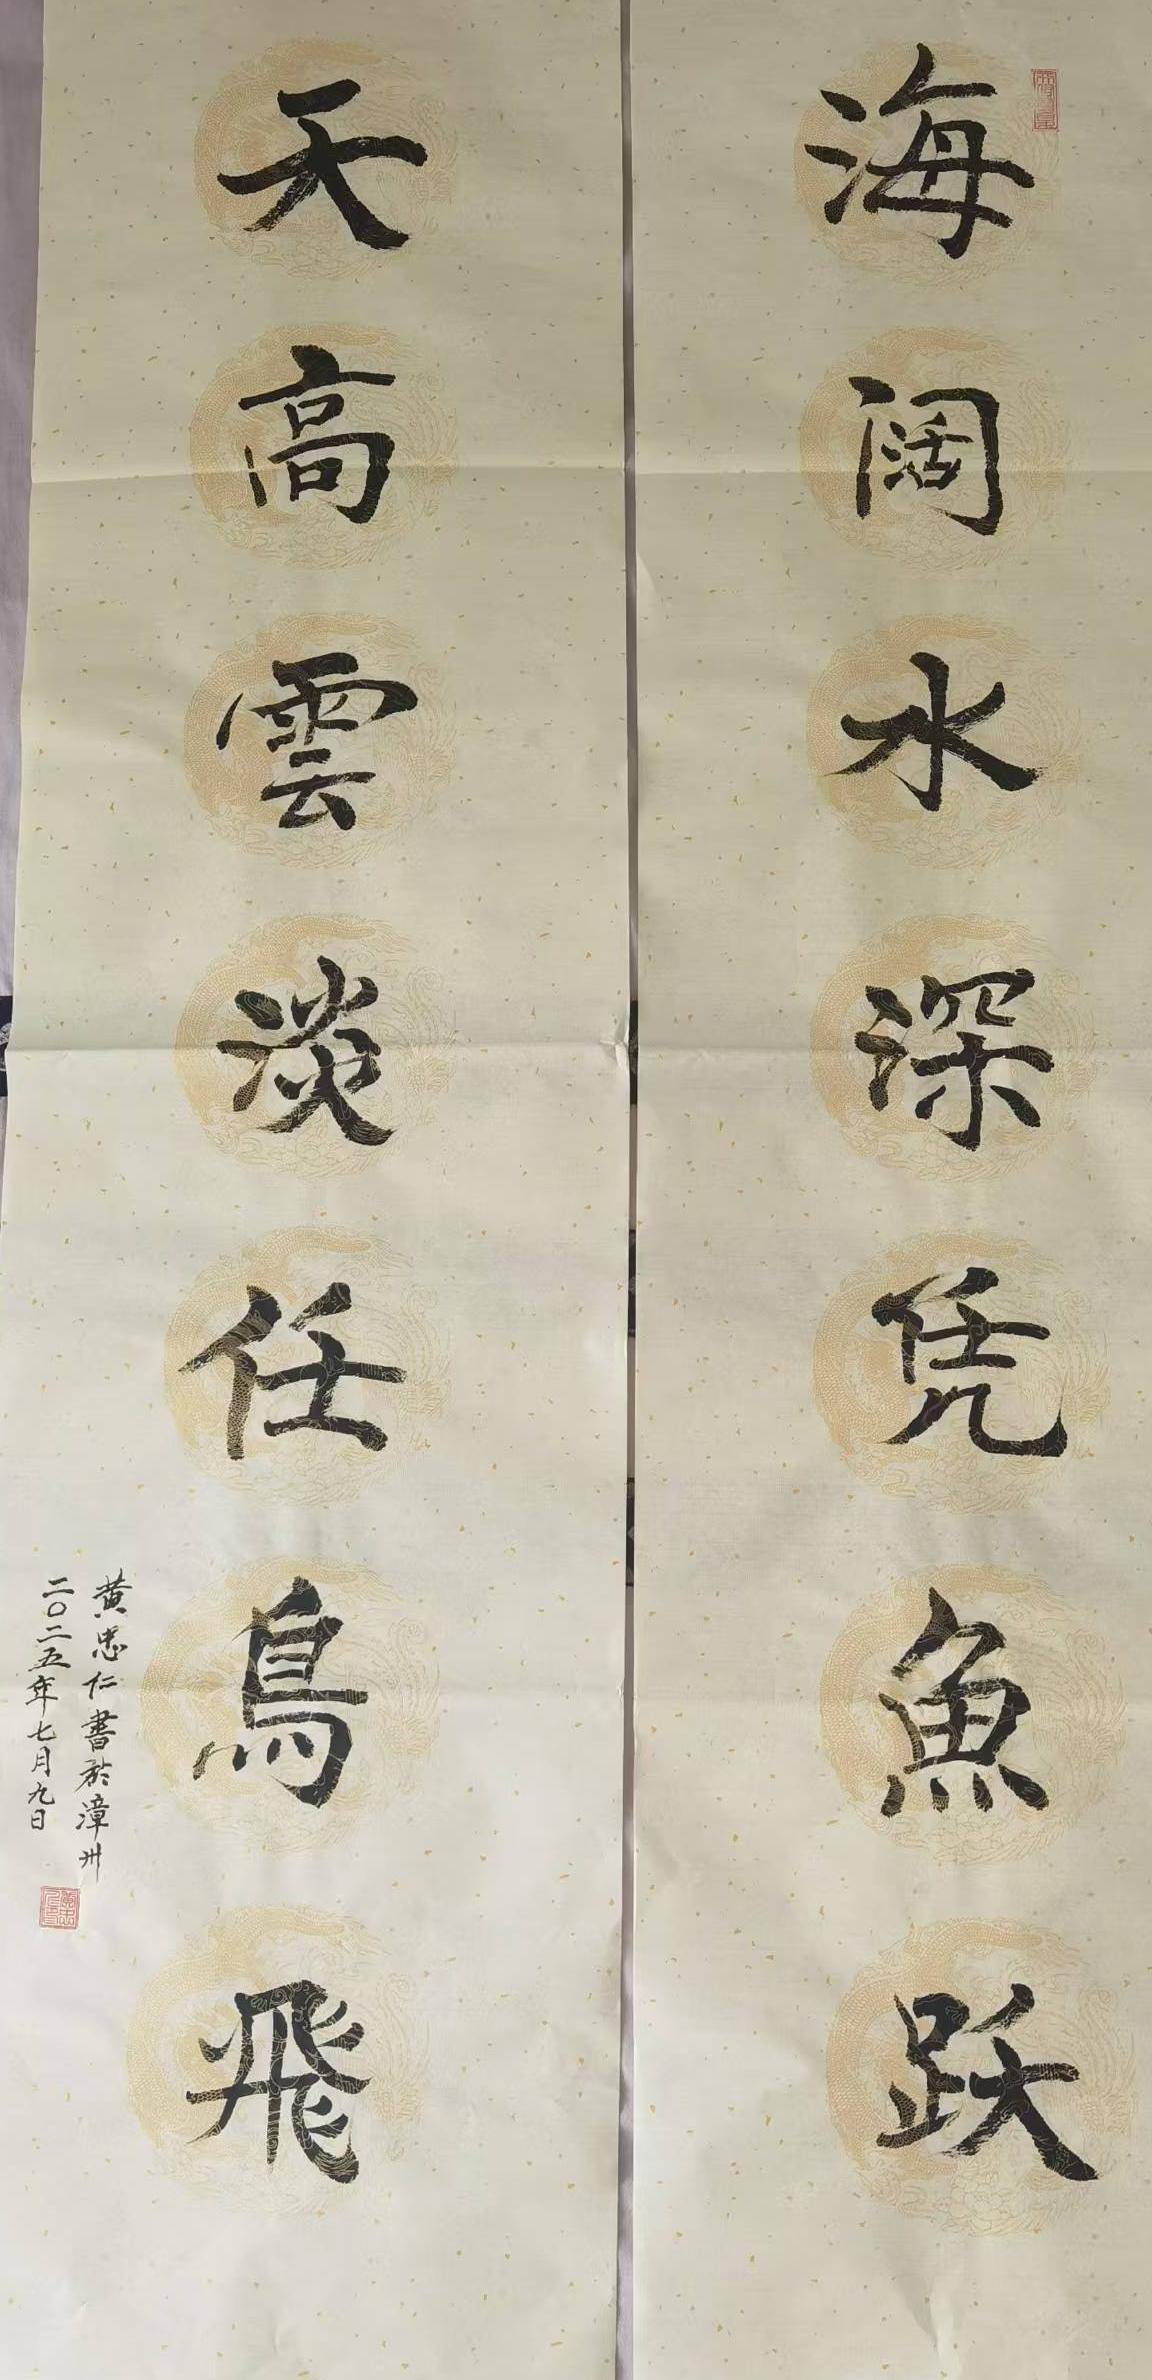 海阔水深凭魚跃
天高雲淡任鳥飛
黄忠仁書於漳州
二〇二五年七月九日